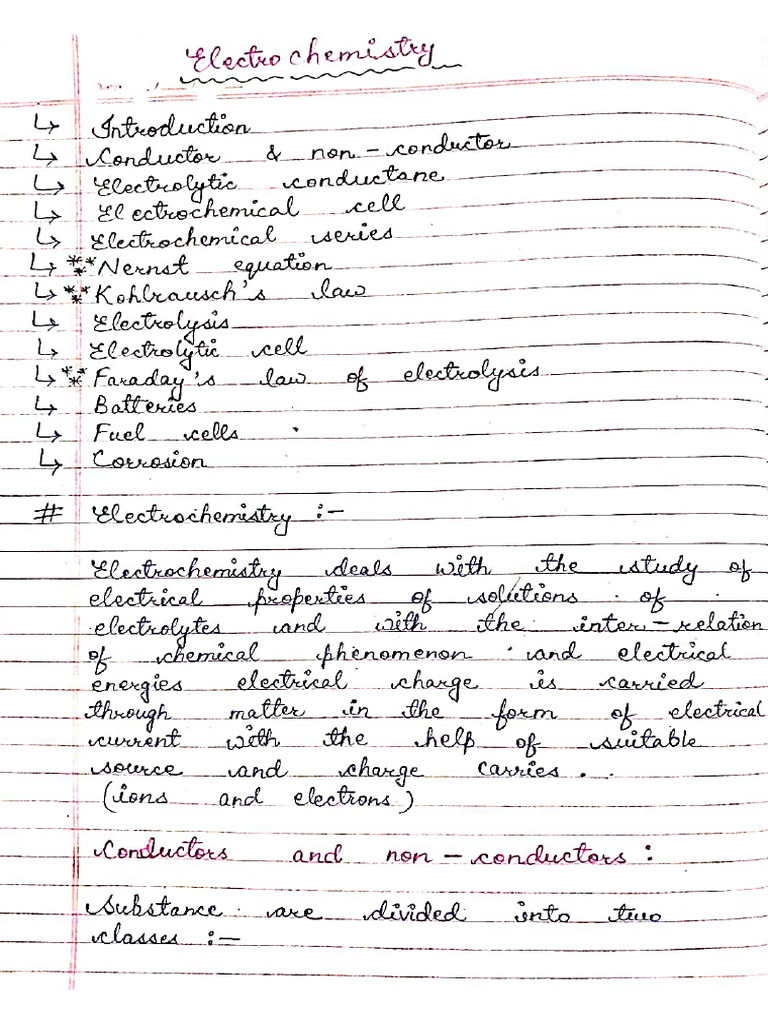 Electrochemistry
↳ Introduction
↳ Conductor & non-conductor
↳ Electrolytic conductane
↳ Electrochemical cell
↳ Electrochemical series
↳ ** Nernst equation
↳ ** Kohlrausch's law
↳ Electrolysis
↳ Electrolytic cell
↳ ** Faraday's law of electrolysis
↳ Batteries
↳ Fuel cells
↳ Corrosion
# Electrochemistry :-
Electrochemistry deals with the study of
electrical properties of solutions of
electrolytes and with the inter-relation
of chemical phenomenon and electrical
energies electrical charge is carried
through matter in the form of electrical
current with the help of suitable
source and charge carries.
(ions and electrons)
Conductors and non-conductors :
Substance are divided into two
classes :-